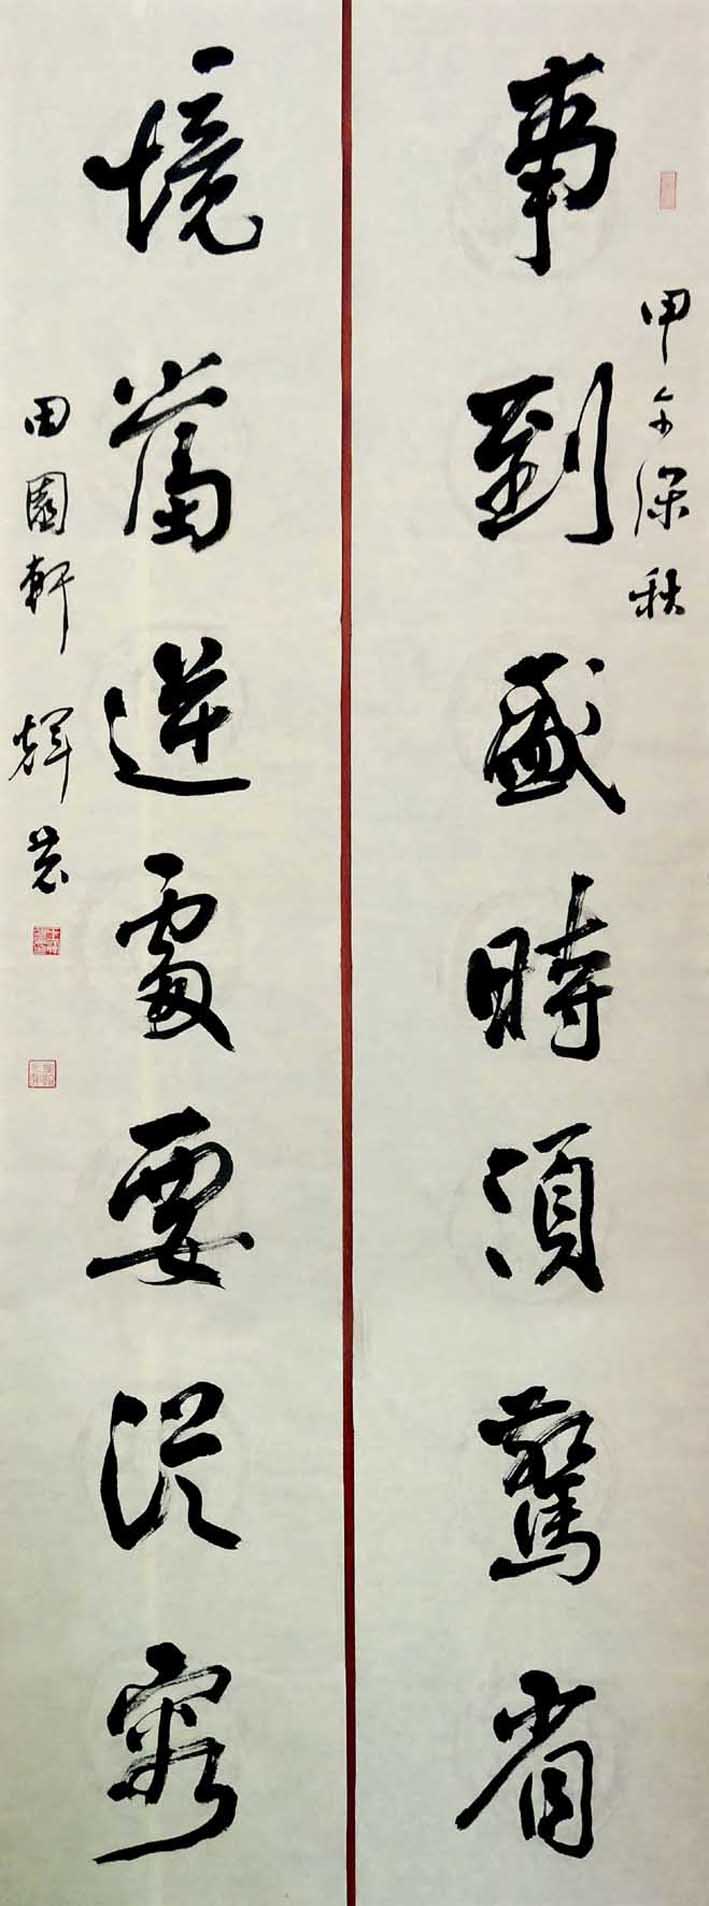 甲午深秋
事到盛時須驚省
境當逆處要從容
田園軒 輝